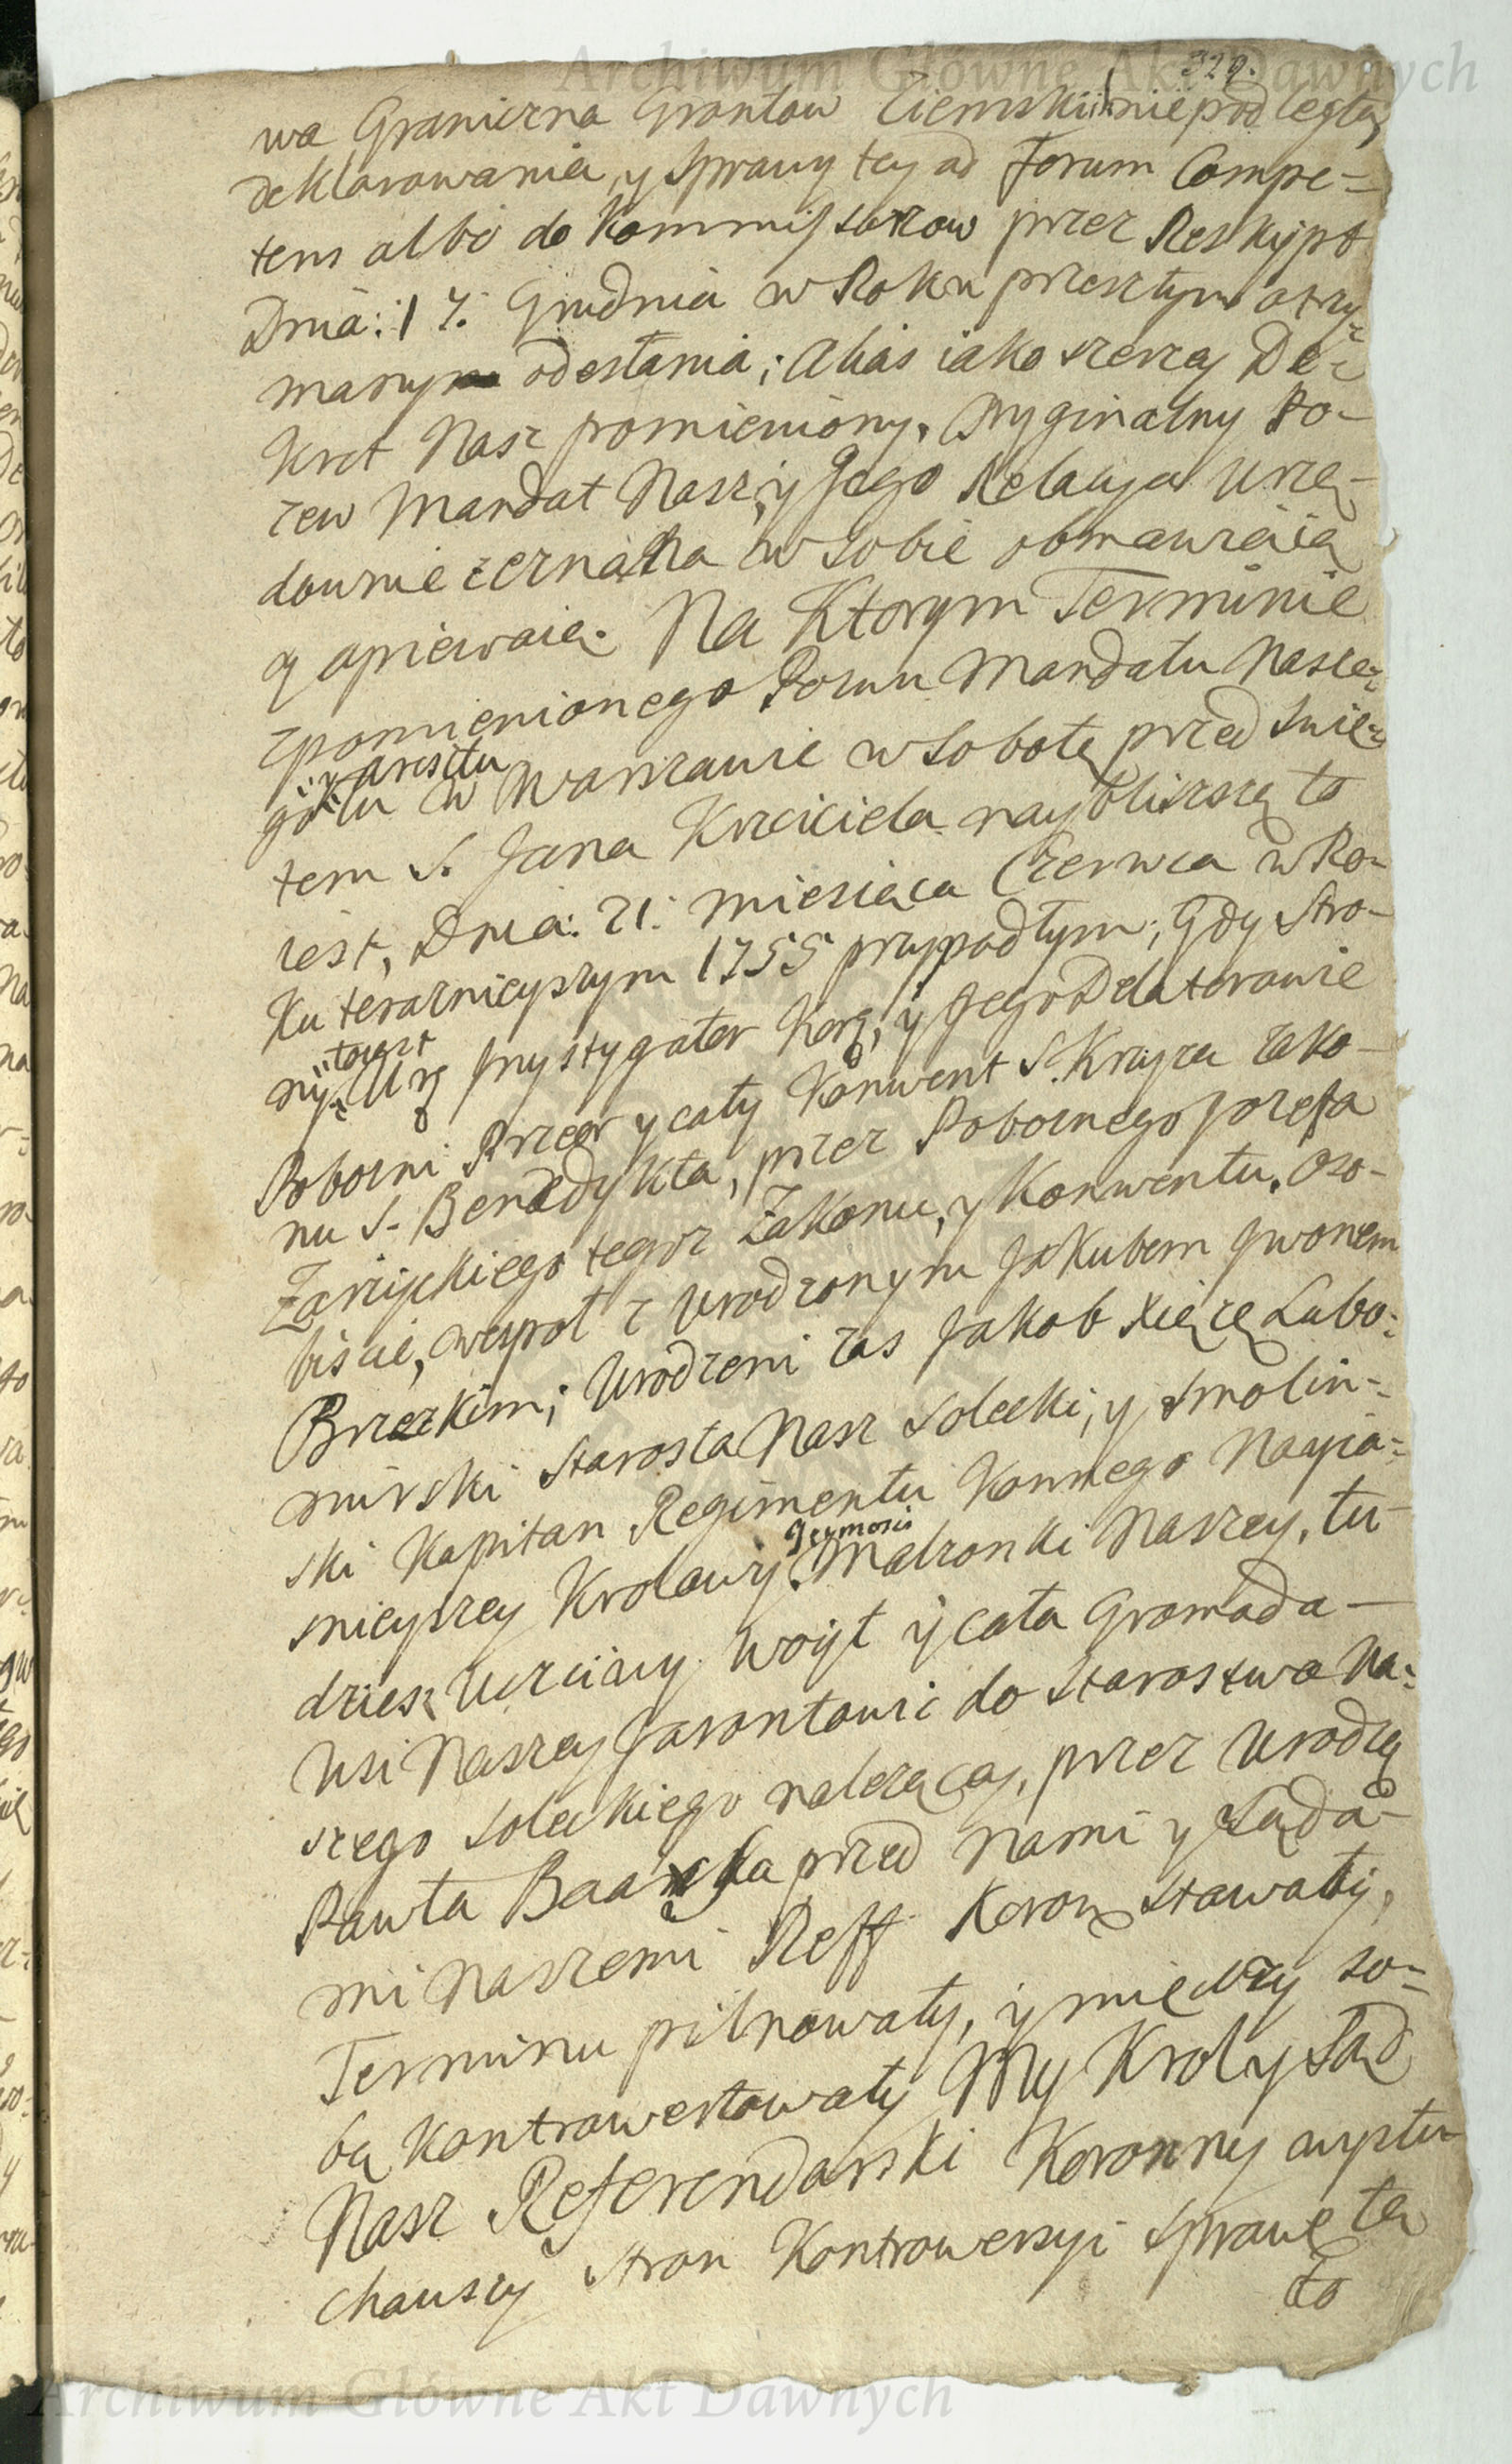 Archiwum Główne Akt Dawnych
329.
wa Graniczna Grontow Ziemskiich niepodległą
deklarowania, y Sprawy tey ad Forum Compe=
tens albo do Kommissarzow przez Reskrypt
Dnia: 17: Grudnia w Roku przeszłym otrzy=
manym odesłania; Alias iako szerzey De=
kret Nasz pomieniony, Oryginalny Po-
zew Mandat Nasz, y Jego Relacya Urzę-
downie zeznana w sobie obmawiaią
y opiewaią. Na Ktorym Terminie
zpomienionego Pozwu Mandatu Nasze=
go y aresztu tu w Warszawie w Sobotę przed Swię=
tem S. Jana Krzciciela nayblizszą to
iest, Dnia: 21: Miesiąca Czerwca w Ro-
ku teraznieyszym 1755 przypadłym; Gdy Stro-
ny, to iest Urz Instygator Kor, y Jego Delatorowie
Pobozni Przeor y cały Konwent S. Krzyza Zako-
nu S. Benedykta, przez Poboznego Jozefa
Zarzyckiego tegoz Zakonu, y Konwentu, Oso-
biscie, wespoł z Urodzonym Jakubem Jwonem
Brzezkim; Urodzeni zas Jakob Xięzę Lubo=
mirski Starosta Nasz Solecki, y Smolin=
ski Kapitan Regimentu Konnego Nayia=
snieyszey Krolowy Jeymosci Małzonki Naszey, tu-
dziesz Uczciwy Woyt y cała Gromada
Wsi Naszey Jarontowic do Starostwa Na=
szego Soleckiego nalezącey, przez Urodzę
Pawła Baarska przed Nami y Sąda-
mi Naszemi Reff Koron stawały,
Terminu pilnowały, y między so=
bą kontrowertowały My Krol y Sąd
Nasz Referendarski Koronny wysłu-
chawszy stron Kontrowersyi Sprawę tę
to
Archiwum Główne Akt Dawnych